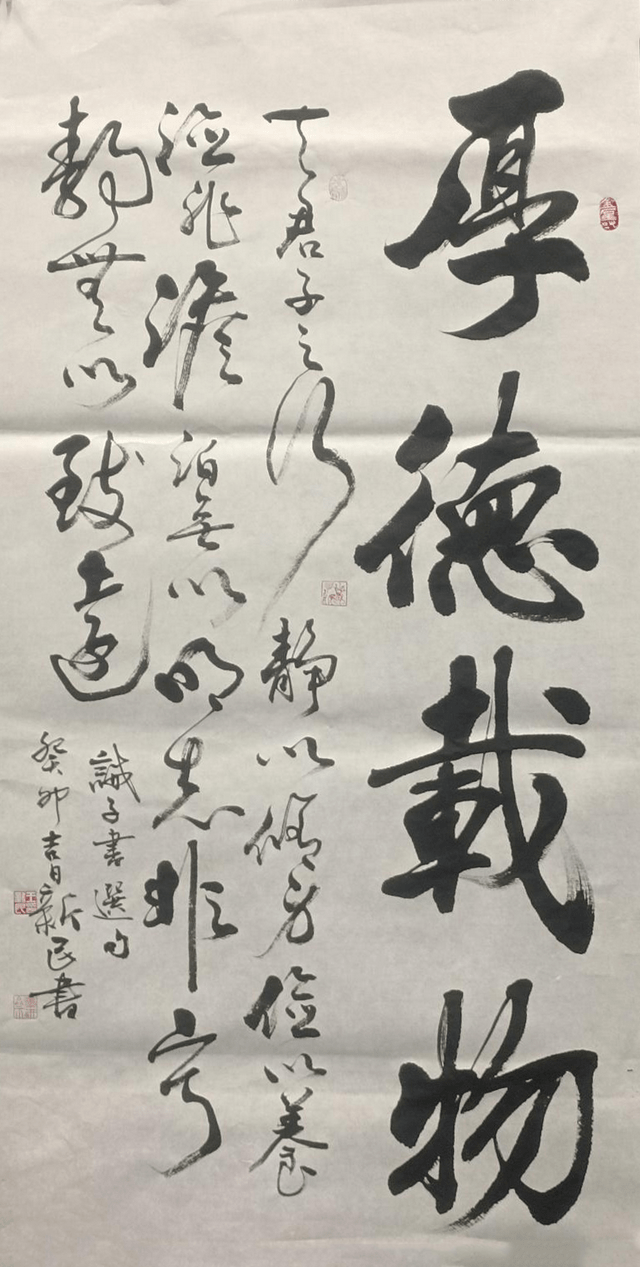 厚德載物
夫君子之行靜以脩身儉以養
德非澹泊無以明志非寧
靜無以致遠
誡子書選句
癸卯吉日新民書